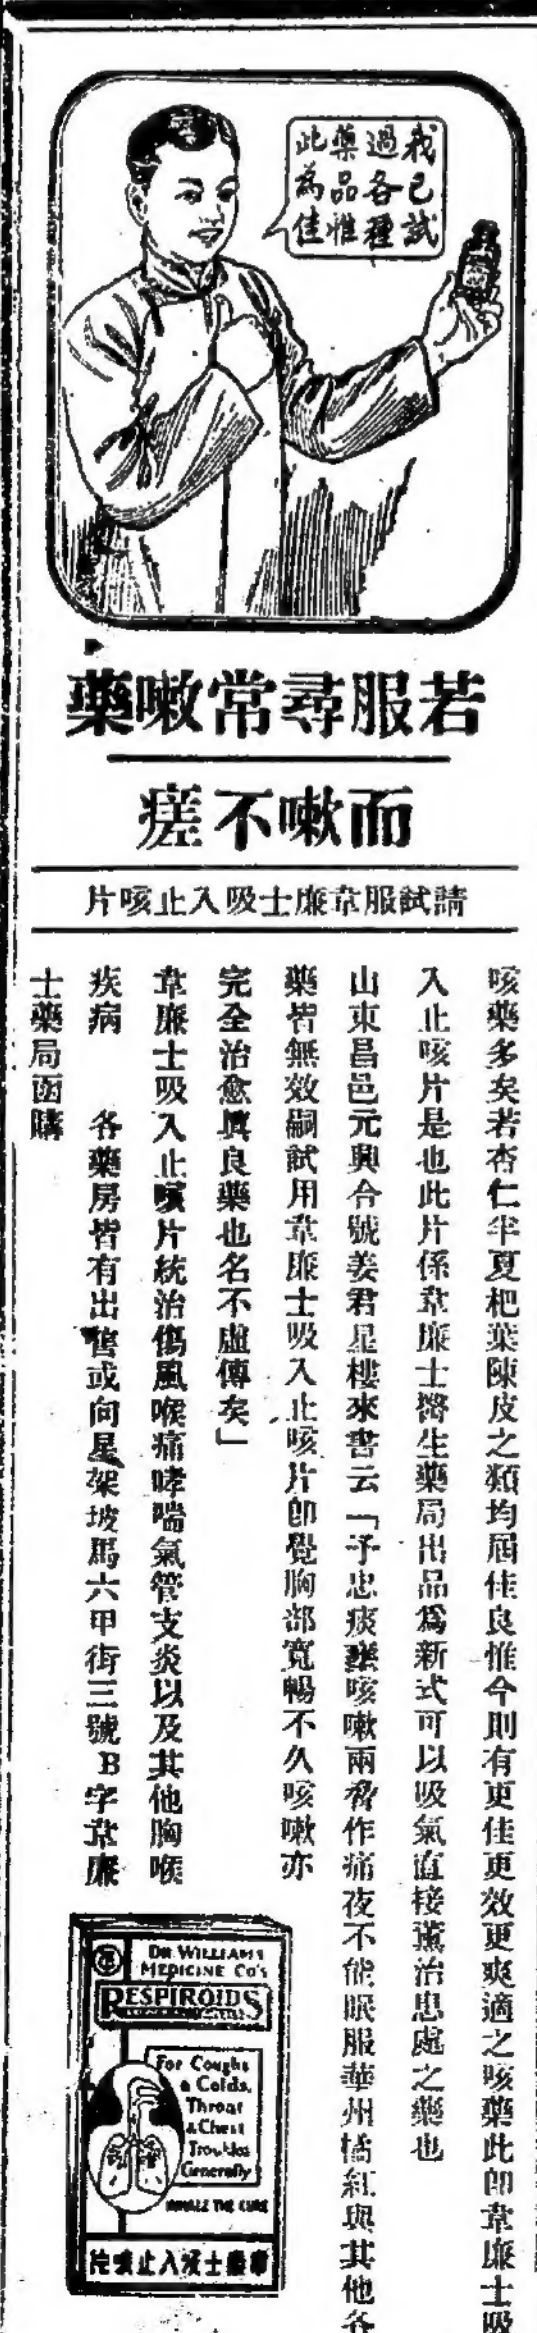 我已試
過各種
藥品惟
此為佳
若服尋常嗽藥
而嗽不瘥
請試服韋廉士吸入止咳片
咳藥多矣若杏仁半夏杷葉陳皮之類均屆佳良惟今則有更佳更效更爽適之咳藥此即韋廉士吸
入止咳片是也此片係韋廉士醫生藥局出品為新式可以吸氣直接薰治患處之藥也
山東昌邑元興合號姜君星樓來書云「予忠痰壅咳嗽兩脅作痛夜不能眠服華州橘紅與其他各
藥皆無效嗣試用韋廉士吸入止咳片即覺胸部寬暢不久咳嗽亦
完全治愈真良藥也名不虛傳矣」
韋廉士吸入止咳片統治傷風喉痛哮喘氣管支炎以及其他胸喉
疾病 各藥房皆有出售或向星架坡馬六甲街三號B字韋廉
士藥局函購
DR WILLIAMS
MEDICINE CO'S
RESPIROIDS
For Coughs
& Colds,
Throat
& Chest
Troubles
Generally
INHALE THE CURE
韋廉士吸入止咳片